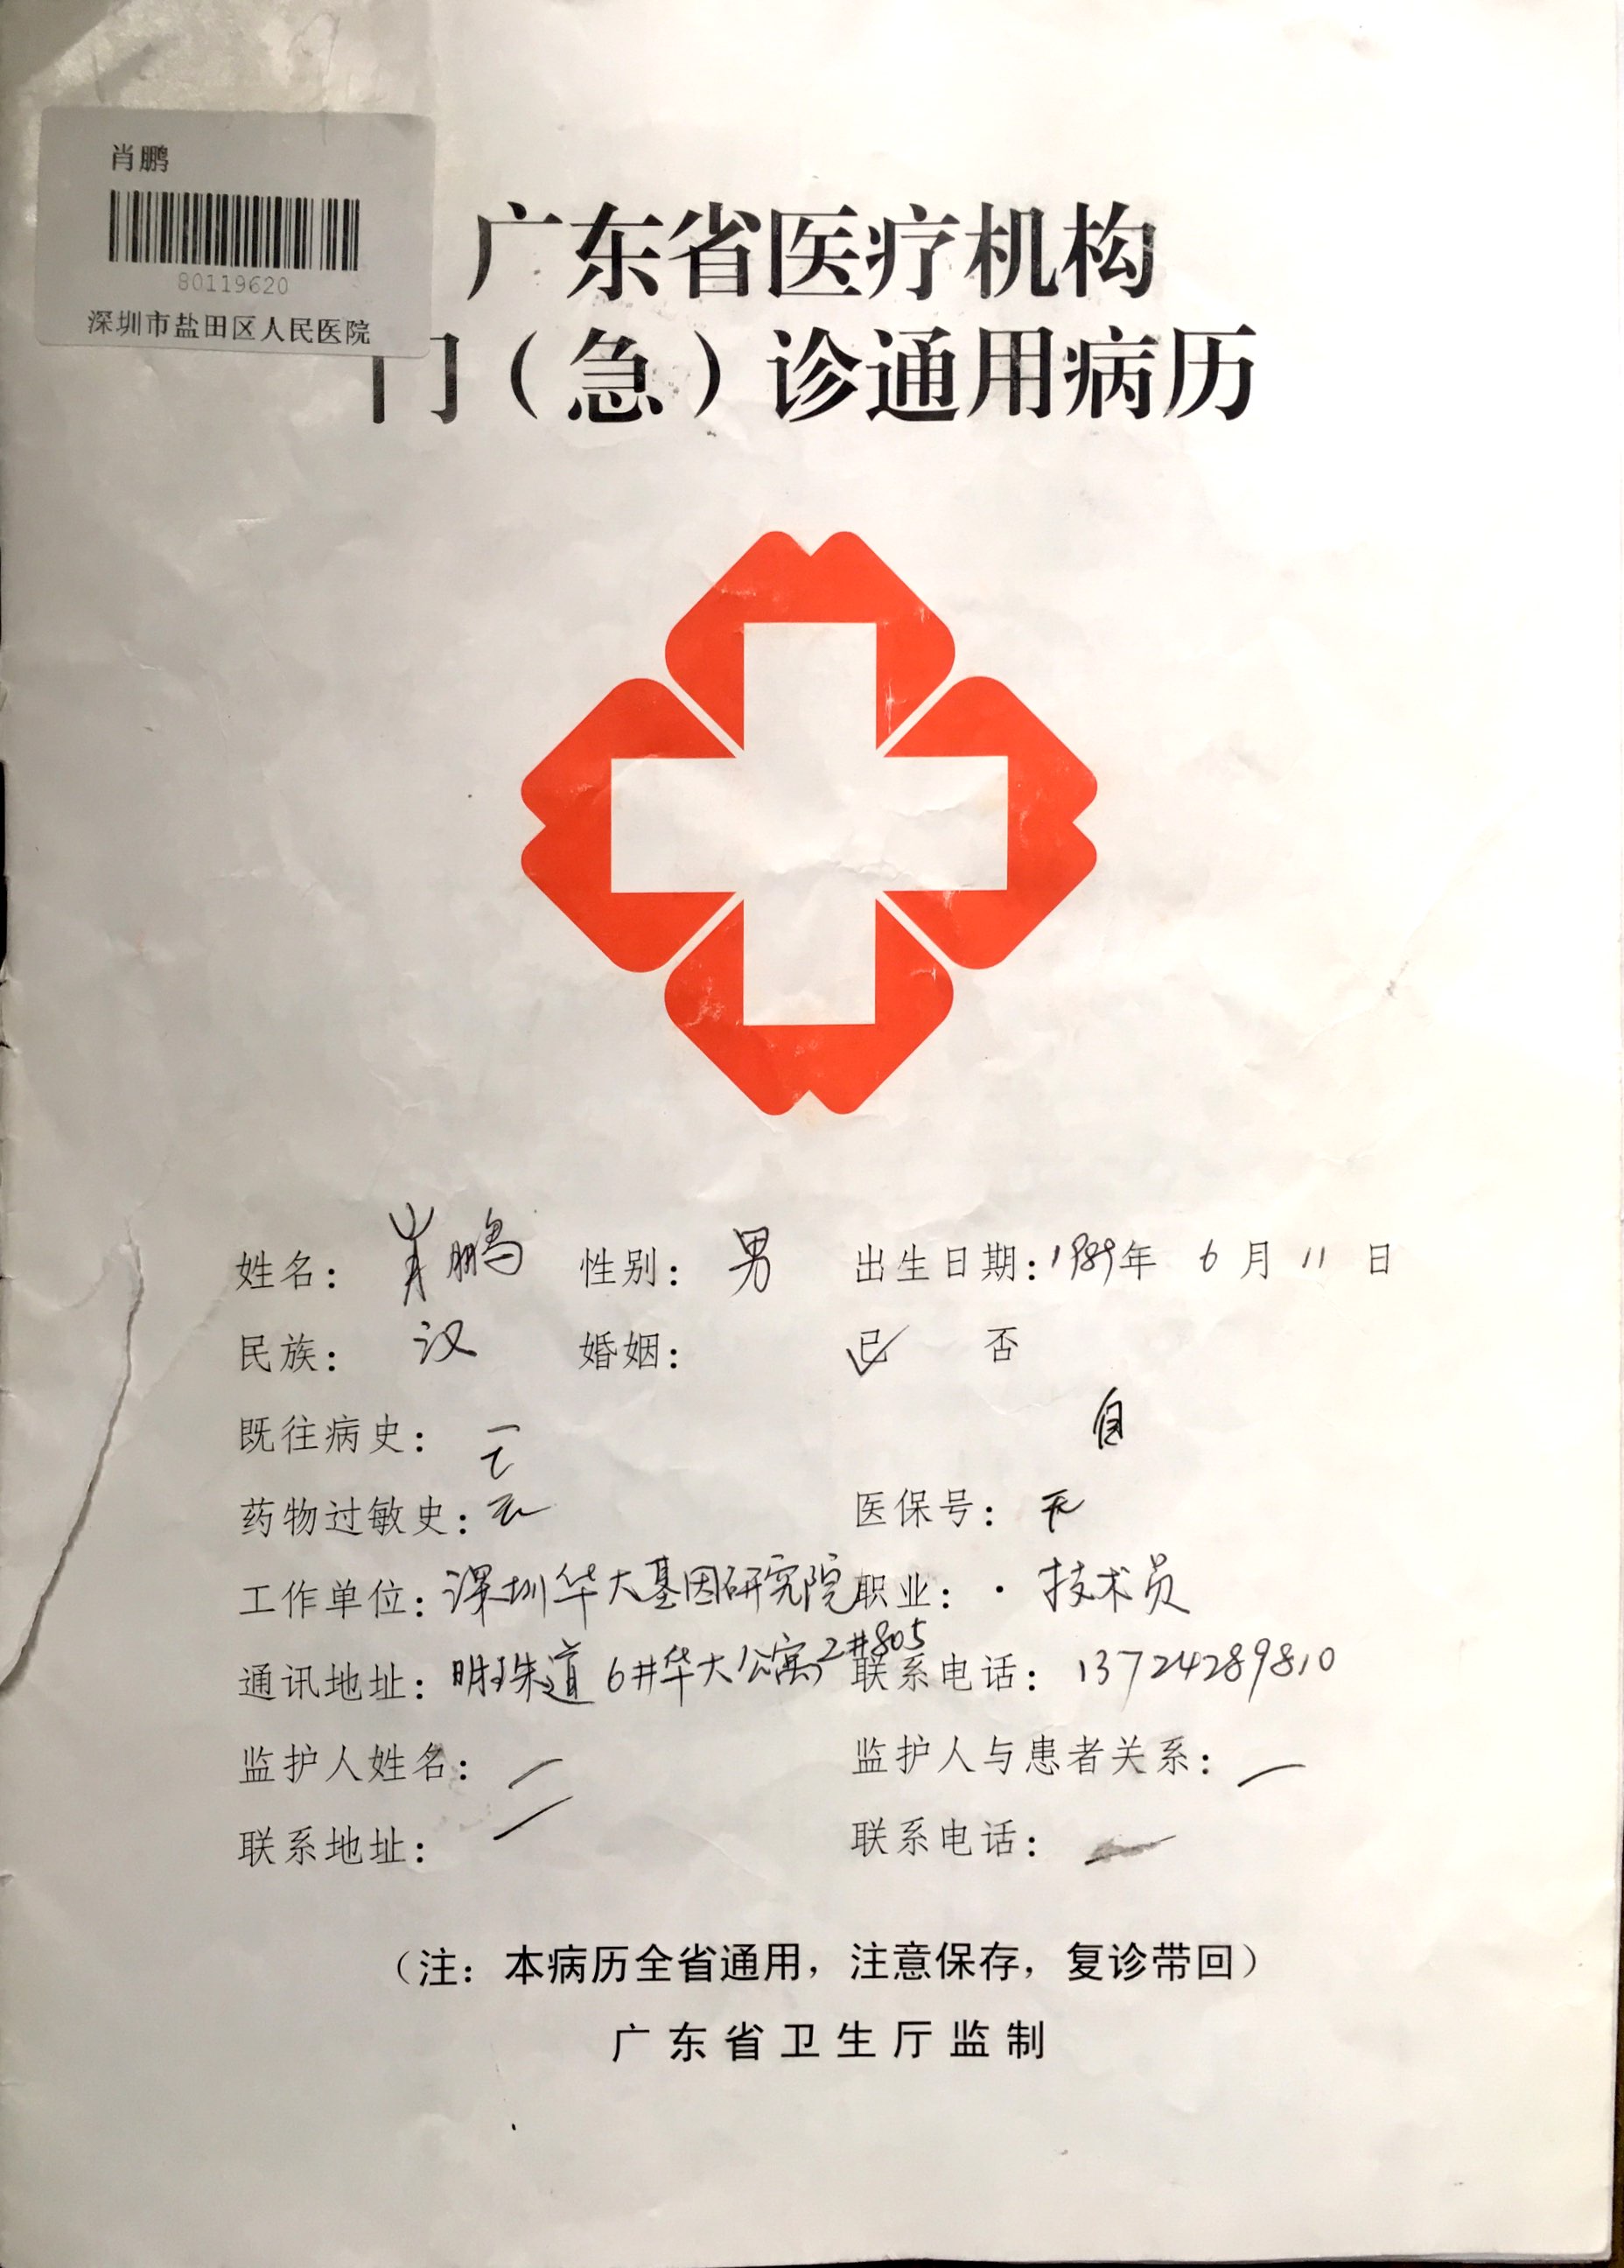 肖鹏
80119620
深圳市盐田区人民医院
广东省医疗机构
门（急）诊通用病历
姓名：肖鹏 性别：男 出生日期：1989年 6月 11日
民族：汉 婚姻： 已 否
既往病史：
自
药物过敏史：无 医保号：无
工作单位：深圳华大基因研究院 职业：技术员
通讯地址：明珠道6#华大公寓2#805 联系电话：13724289810
监护人姓名： 监护人与患者关系：
联系地址： 联系电话：
（注：本病历全省通用，注意保存，复诊带回）
广东省卫生厅监制